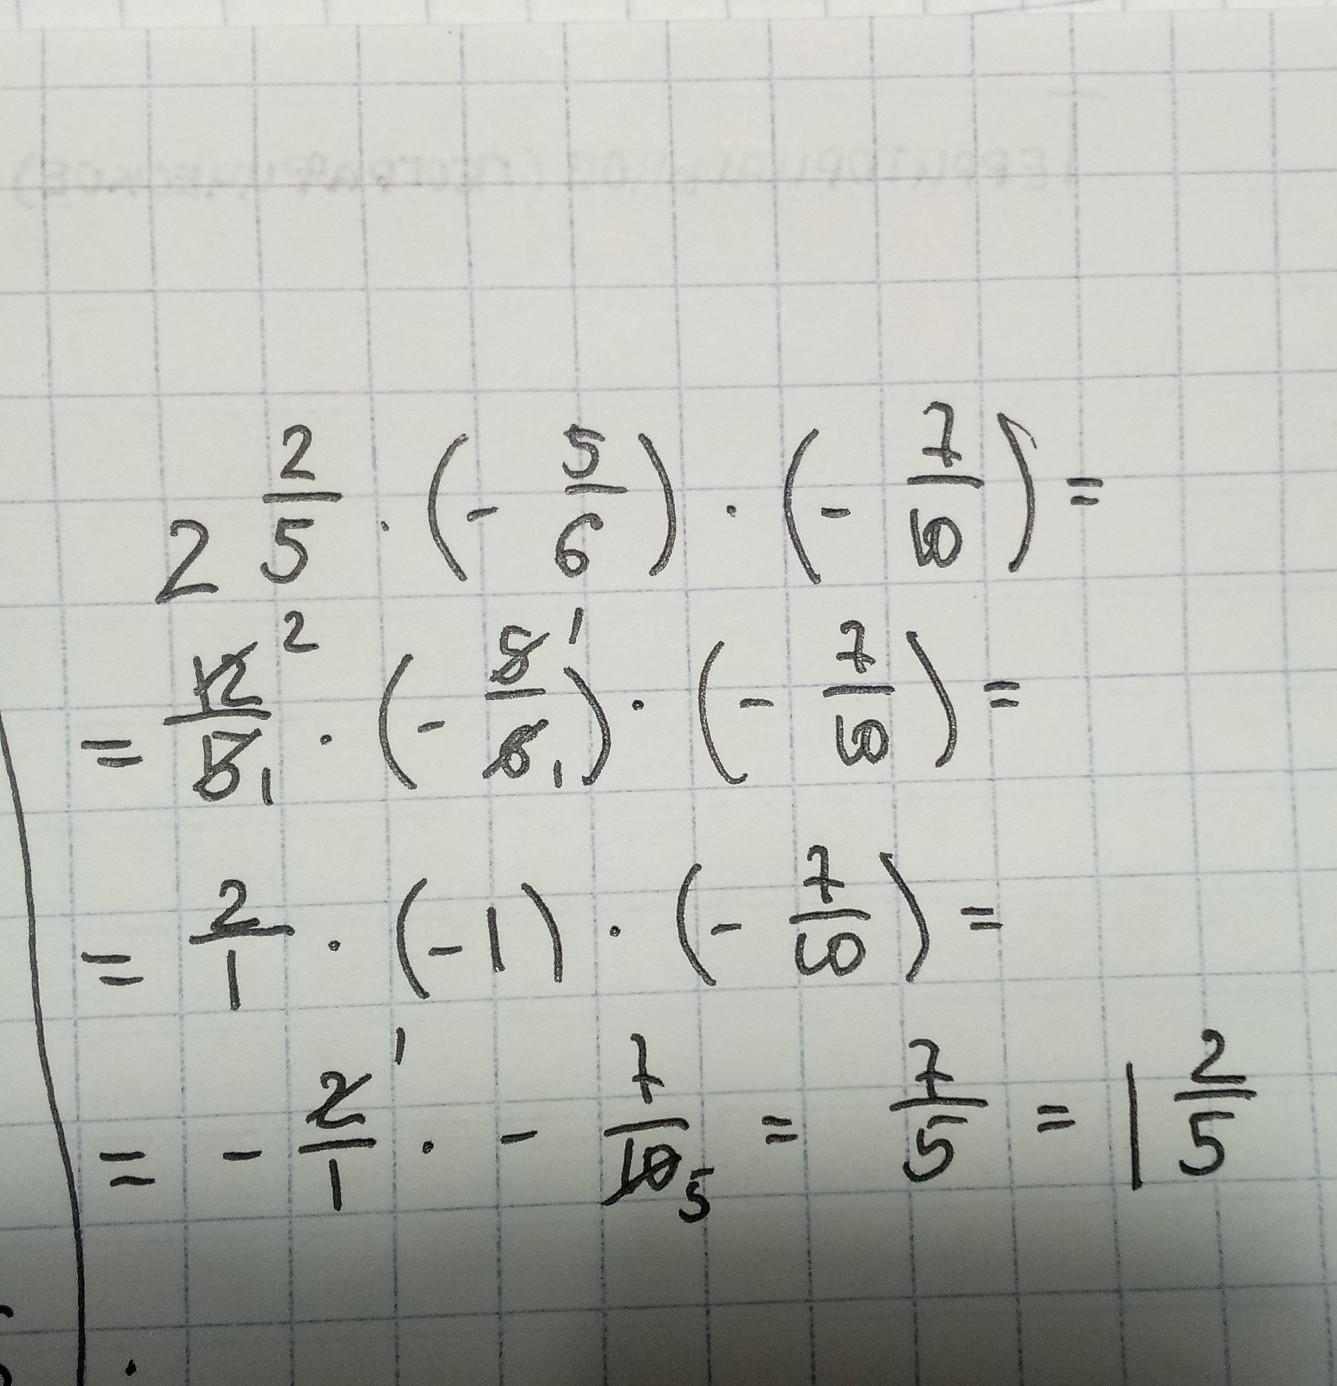 2 2/5 · (- 5/6) · (- 7/10) =
= 12/5 2 1 · (- 5/6 1 1) · (- 7/10) =
= 2/1 · (-1) · (- 7/10) =
= - 2/1 1 · - 7/10 5 = 7/5 = 1 2/5